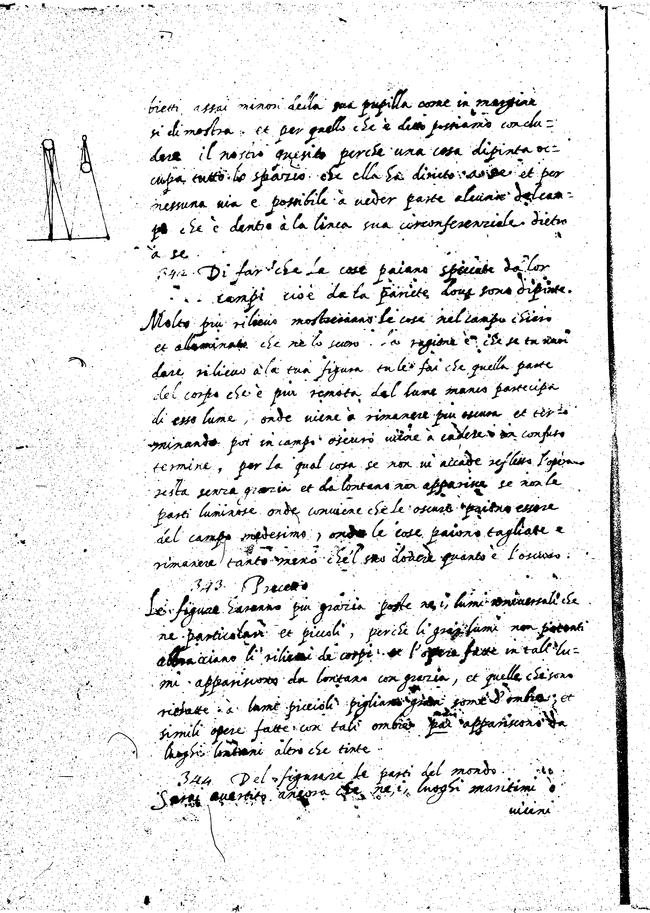 bietti assai minori della sua pupilla come in margine
si dimostra. et per quello che è detto possiamo conclu=
dere il nostro quesito perche una cosa dipinta oc=
cupa tutto lo spazio che ella hà dirieto a se et per
nessuna via e possibile à veder parte alcuna del cam=
po che è dentro à la linea sua circonferenziale dietro
à se.
342 Di far che le cose paiano spiccate da lor
campi cioè da la pariete dove sono dipinte.
Molto piu rilievo mostreranno le cose nel campo chiaro
et alluminato che ne lo scuro. la ragione è, che se tu vuoi
dare rilievo à la tua figura tu le fai che quella parte
del corpo che è piu remota dal lume manco partecipa
di esso lume, onde viene à rimanere piu oscura et ter=
minando poi in campo oscuro viene à cadere in confuso
termine, per la qual cosa se non vi accade reflesso l'opera
resta senza grazia et da lontano non apparisce se non le
parti luminose onde conviene che le oscure paino essere
del campo medesimo, onde le cose paiono tagliate e
rimanere tanto meno che'l suo dovere quanto è l'oscuro.
343 Precetto
Le figure haranno piu grazia poste ne, i, lumi universali che
ne particolari et piccoli, perche li gran lumi non potenti
abbracciano li rilievi de corpi et l'opere fatte in tali lu=
mi appariscono da lontano con grazia, et quelle che sono
ritratte à lume piccioli pigliano gran somma d'ombra, et
simili opere fatte con tali ombre mai appariscono da
luoghi lontani altro che tinte.
344 Del figurare le parti del mondo.
Sarai avertito ancora che ne, i, luoghi maritimi ò
vicini